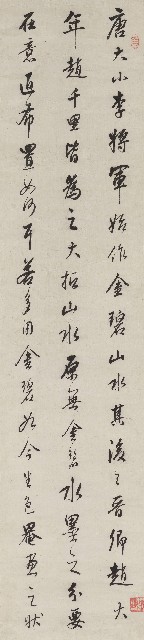 唐大小李將軍始作金碧山水其後王晉卿趙大
年趙千里皆為之大抵山水原無金碧水墨之分要
在意匠布置如何耳若多用金碧如今生色罨畫之狀